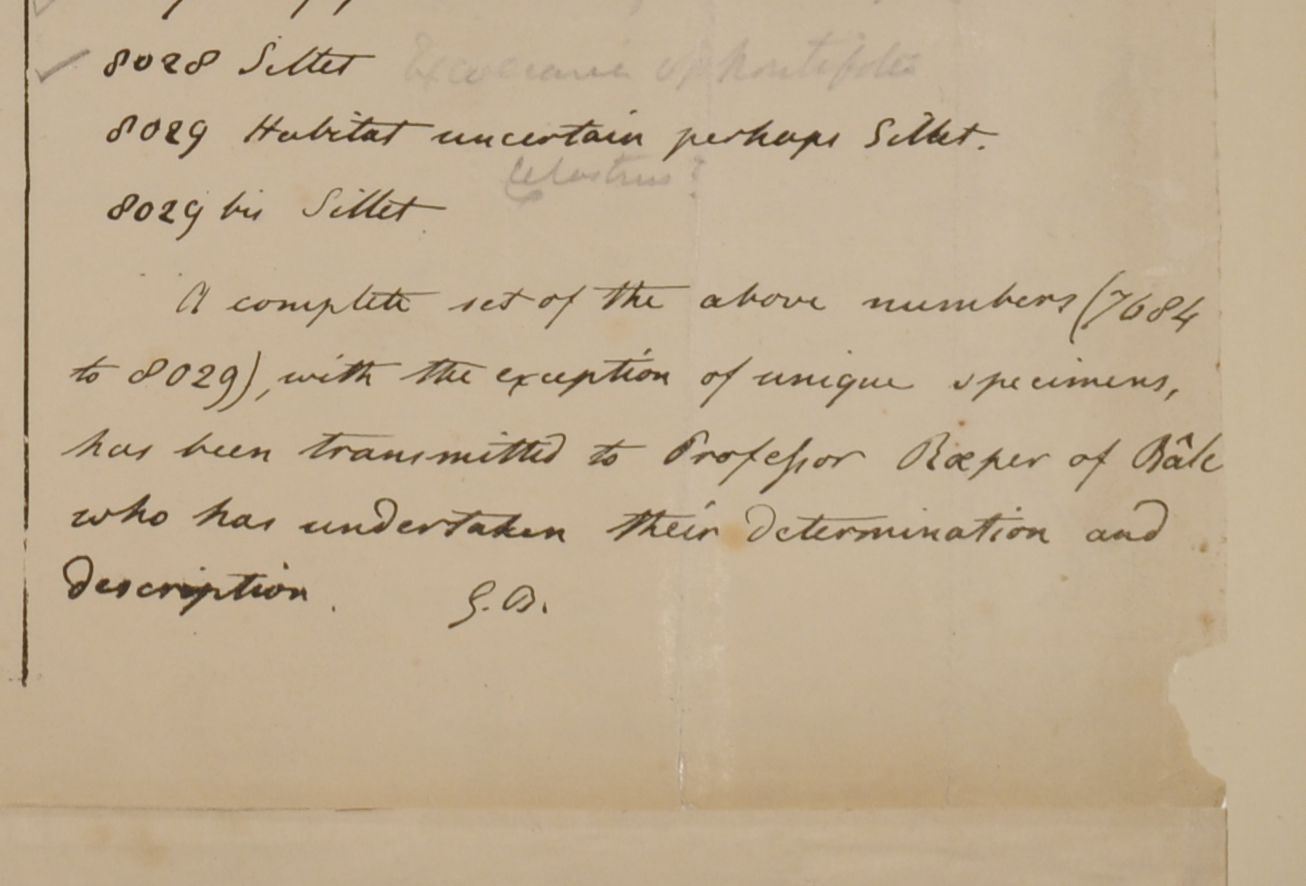 8028 Sillet
8029 Habitat uncertain perhaps Sillet.
Celastrus?
8029 bis Sillet
A complete set of the above numbers (7684
to 8029), with the exception of unique specimens,
has been transmitted to Profeſsor Rœper of Bâle
who has undertaken their determination and
description. G.B.